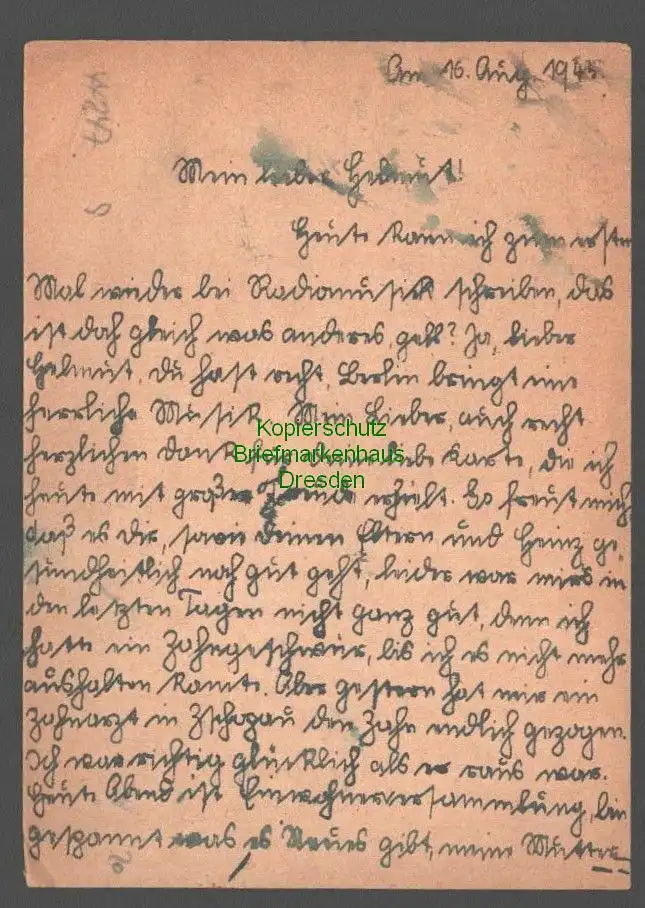 Am 16. Aug. 1945.
Mein lieber Helmut!
Heute kann ich zum ersten
Mal wieder bei Radiomusik schreiben, das
ist doch gleich was anderes, gell? Ja, lieber
Helmut, du hast recht, Berlin bringt eine
herrliche Musik. Mein Lieber, auch recht
herzlichen Dank für deine liebe Karte, die ich
heute mit großer Freude erhielt. Es freut mich,
daß es Dir, sowie deinen Eltern und Heinz ge-
sundheitlich noch gut geht, leider war mirs in
den letzten Tagen nicht ganz gut, denn ich
hatte ein Zahngeschwür, bis ich es nicht mehr
aushalten konnte. Aber gestern hat mir ein
Zahnarzt in Zschopau den Zahn endlich gezogen.
Ich war richtig glücklich als er raus war.
Heute Abend ist Einwohnerversammlung, bin
gespannt was es Neues gibt, meine Mutter
Kopierschutz
Briefmarkenhaus
Dresden